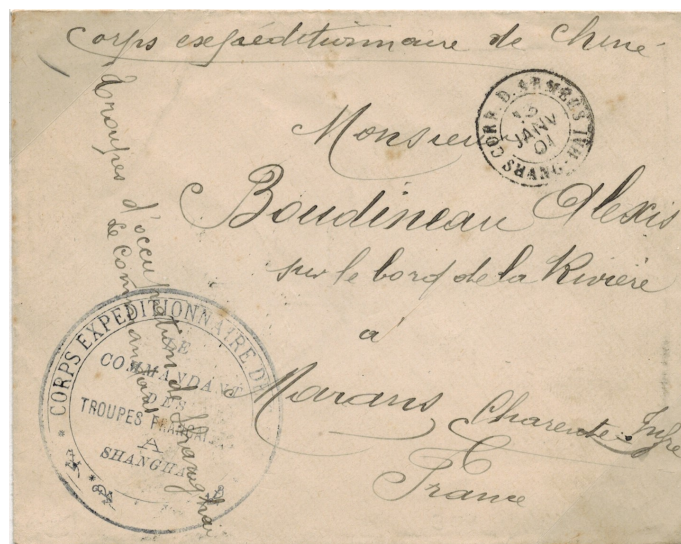 Corps expéditionnaire de Chine
CORR. D. ARMÉES
12
JANV
01
Monsieur
Boudineau Alexis
sur le bord de la Rivière
à
Marans Charente Infre
France
Troupes d'occupation de Shanghai
Le Commandant
CORPS EXPEDITIONNAIRE DE
LE
COMMANDANT
DES
TROUPES FRANÇAISES
A
SHANGHAI